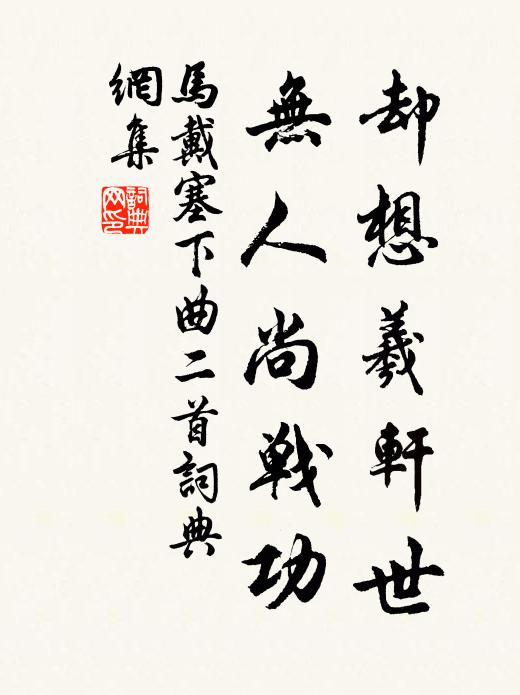 却想羲軒世
無人尚戦功
馬戴塞下曲二首詞典
網集
詞典
网印